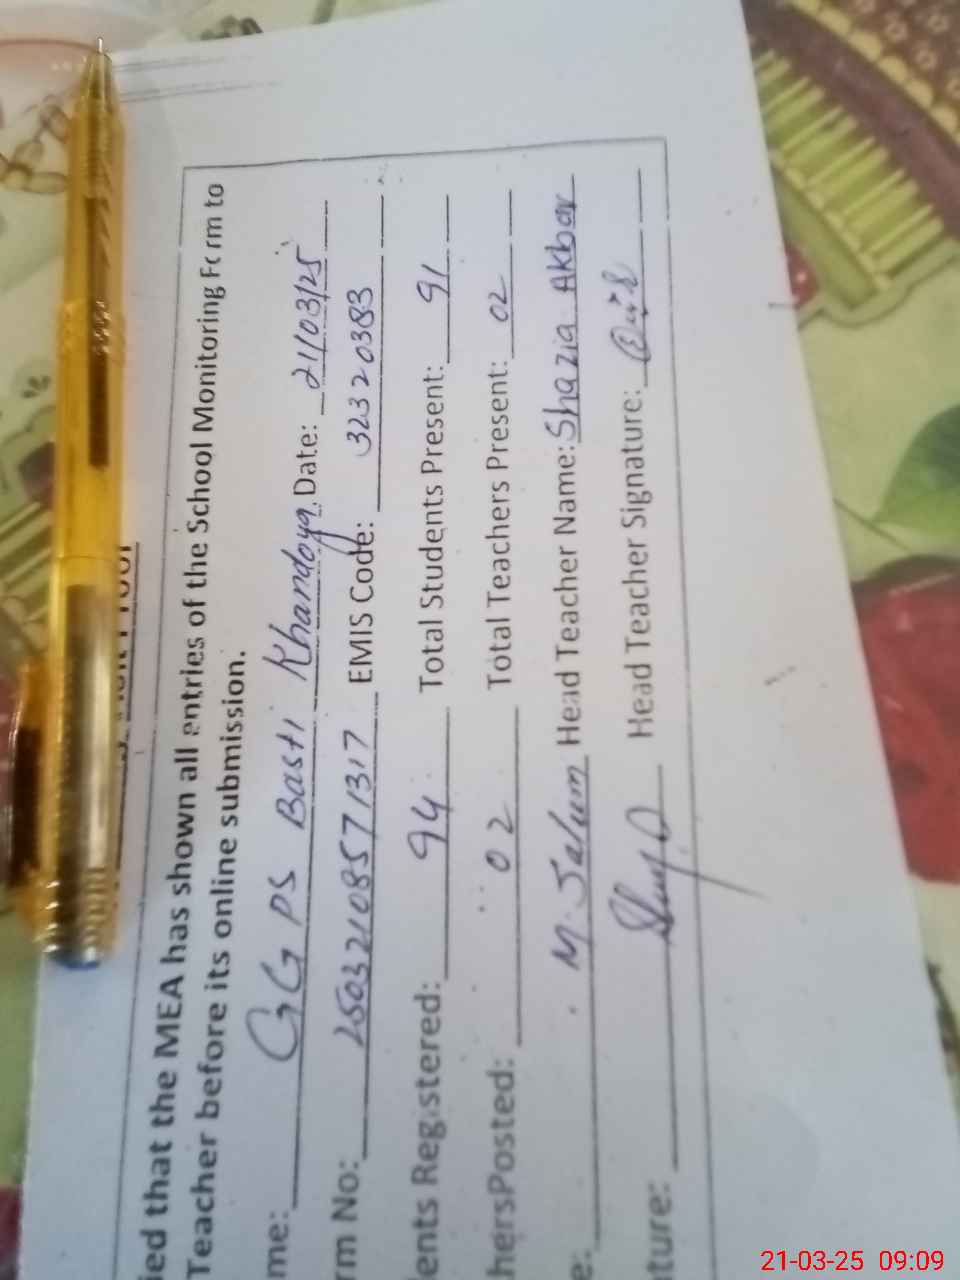 ied that the MEA has shown all entries of the School Monitoring Form to
Teacher before its online submission.
me: GGPS Basti Khandoya Date: 21/03/25
rm No: 25032108571317 EMIS Code: 32320383
ents Registered: 94 Total Students Present: 91
hersPosted: 02 Total Teachers Present: 02
e: M. Salum Head Teacher Name: Shazia Akbar
ture: Head Teacher Signature:
21-03-25 09:09